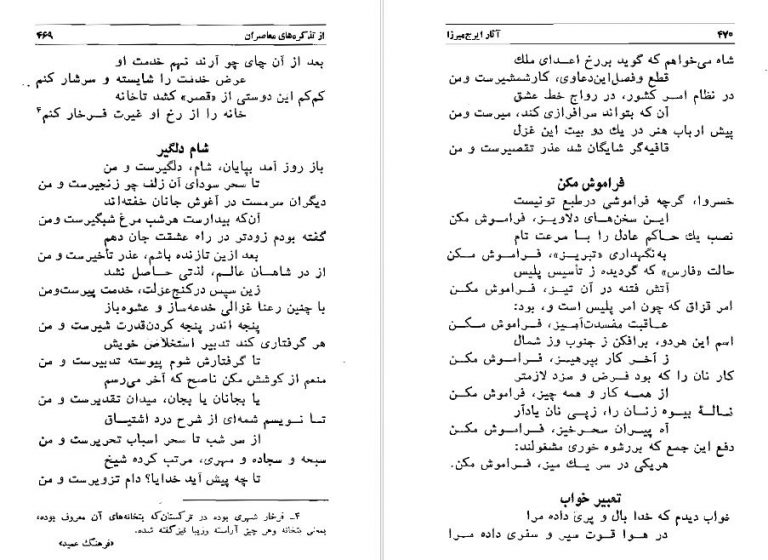 ۴۶۹ از تذکره‌های معاصران
بعد از آن چای چو آرند نهم خدمت او
عرض خدمت را شایسته و سرشار کنم
کم‌کم این دوستی از «قصر» کشد تاخانه
خانه را از رخ او غیرت فرخار کنم۴
شام دلگیر
باز روز آمد بپایان، شام، دلگیرست و من
تا سحر سودای آن زلف چو زنجیرست و من
دیگران سرمست در آغوش جانان خفته‌اند
آن‌که بیدارست هرشب مرغ شبگیرست ومن
گفته بودم زودتر در راه عشقت جان دهم
بعد ازین تازنده باشم، عذر تأخیرست و من
از در شاهان عالم، لذتی حاصل نشد
زین سپس درکنج‌عزلت، خدمت پیرست‌ومن
با چنین رعنا غزالی خدعه‌ساز و عشوه‌باز
پنجه اندر پنجه کردن‌قدرت شیرست و من
هر گرفتاری کند تدبیر استخلاص خویش
تا گرفتارش شوم پیوسته تدبیرست و من
منعم از کوشش مکن ناصح که آخر می‌رسم
یا بجانان یا بجان، میدان تقدیرست و من
تا نویسم شمه‌ای از شرح درد اشتیاق
از سر شب تا سحر اسباب تحریرست و من
سبحه و سجاده و مهری، مرتب کرده شیخ
تا چه پیش آید خدایا؟ دام تزویرست و من
۴ـ فرخار شهری بوده در ترکستان‌که بتخانه‌های آن معروف بوده،
بمعنی بتخانه وهر چیز آراسته وزیبا نیزگفته شده.
«فرهنگ عمید»
آثار ایرج‌میرزا ۴۷۰
شاه می‌خواهم که گوید بررخ اعدای ملك
قطع وفصل‌این‌دعاوی، کارشمشیرست ومن
در نظام امر کشور، در رواج خط عشق
آن که بتواند سرافرازی کند، میرست ومن
پیش ارباب هنر در یك دو بیت این غزل
قافیه‌گر شایگان شد عذر تقصیرست و من
فراموش مکن
خسروا، گرچه فراموشی درطبع تونیست
این سخن‌های دلاویز، فراموش مکن
نصب یك حاکم عادل را بـا سرعت تام
به‌نگهداری «تبریز»، فراموش مکن
حالت «فارس» که گردیده ز تأسیس پلیس
آتش فتنه در آن تیـز، فراموش مکن
امر قزاق که چون امر پلیس است و، بود:
عاقبت مفسدت‌آمیز، فراموش مکن
اسم این هردو، برافکن ز جنوب وز شمال
ز آخر کار بپرهیز، فراموش مکن
کار نان را که بود فرض و سزد لازمتر
از همه کار و همه چیز، فراموش مکن
نالهٔ بیوه زنان را، زپی نان یادآر
آه پیران سحرخیز، فراموش مکن
دفع این جمع که بررشوه خوری مشغولند:
هریکی در سر یك میز، فراموش مکن.
تعبیر خواب
خواب دیدم که خدا بال و پری داده مرا
در هوا قوت سیر و سفری داده مرا